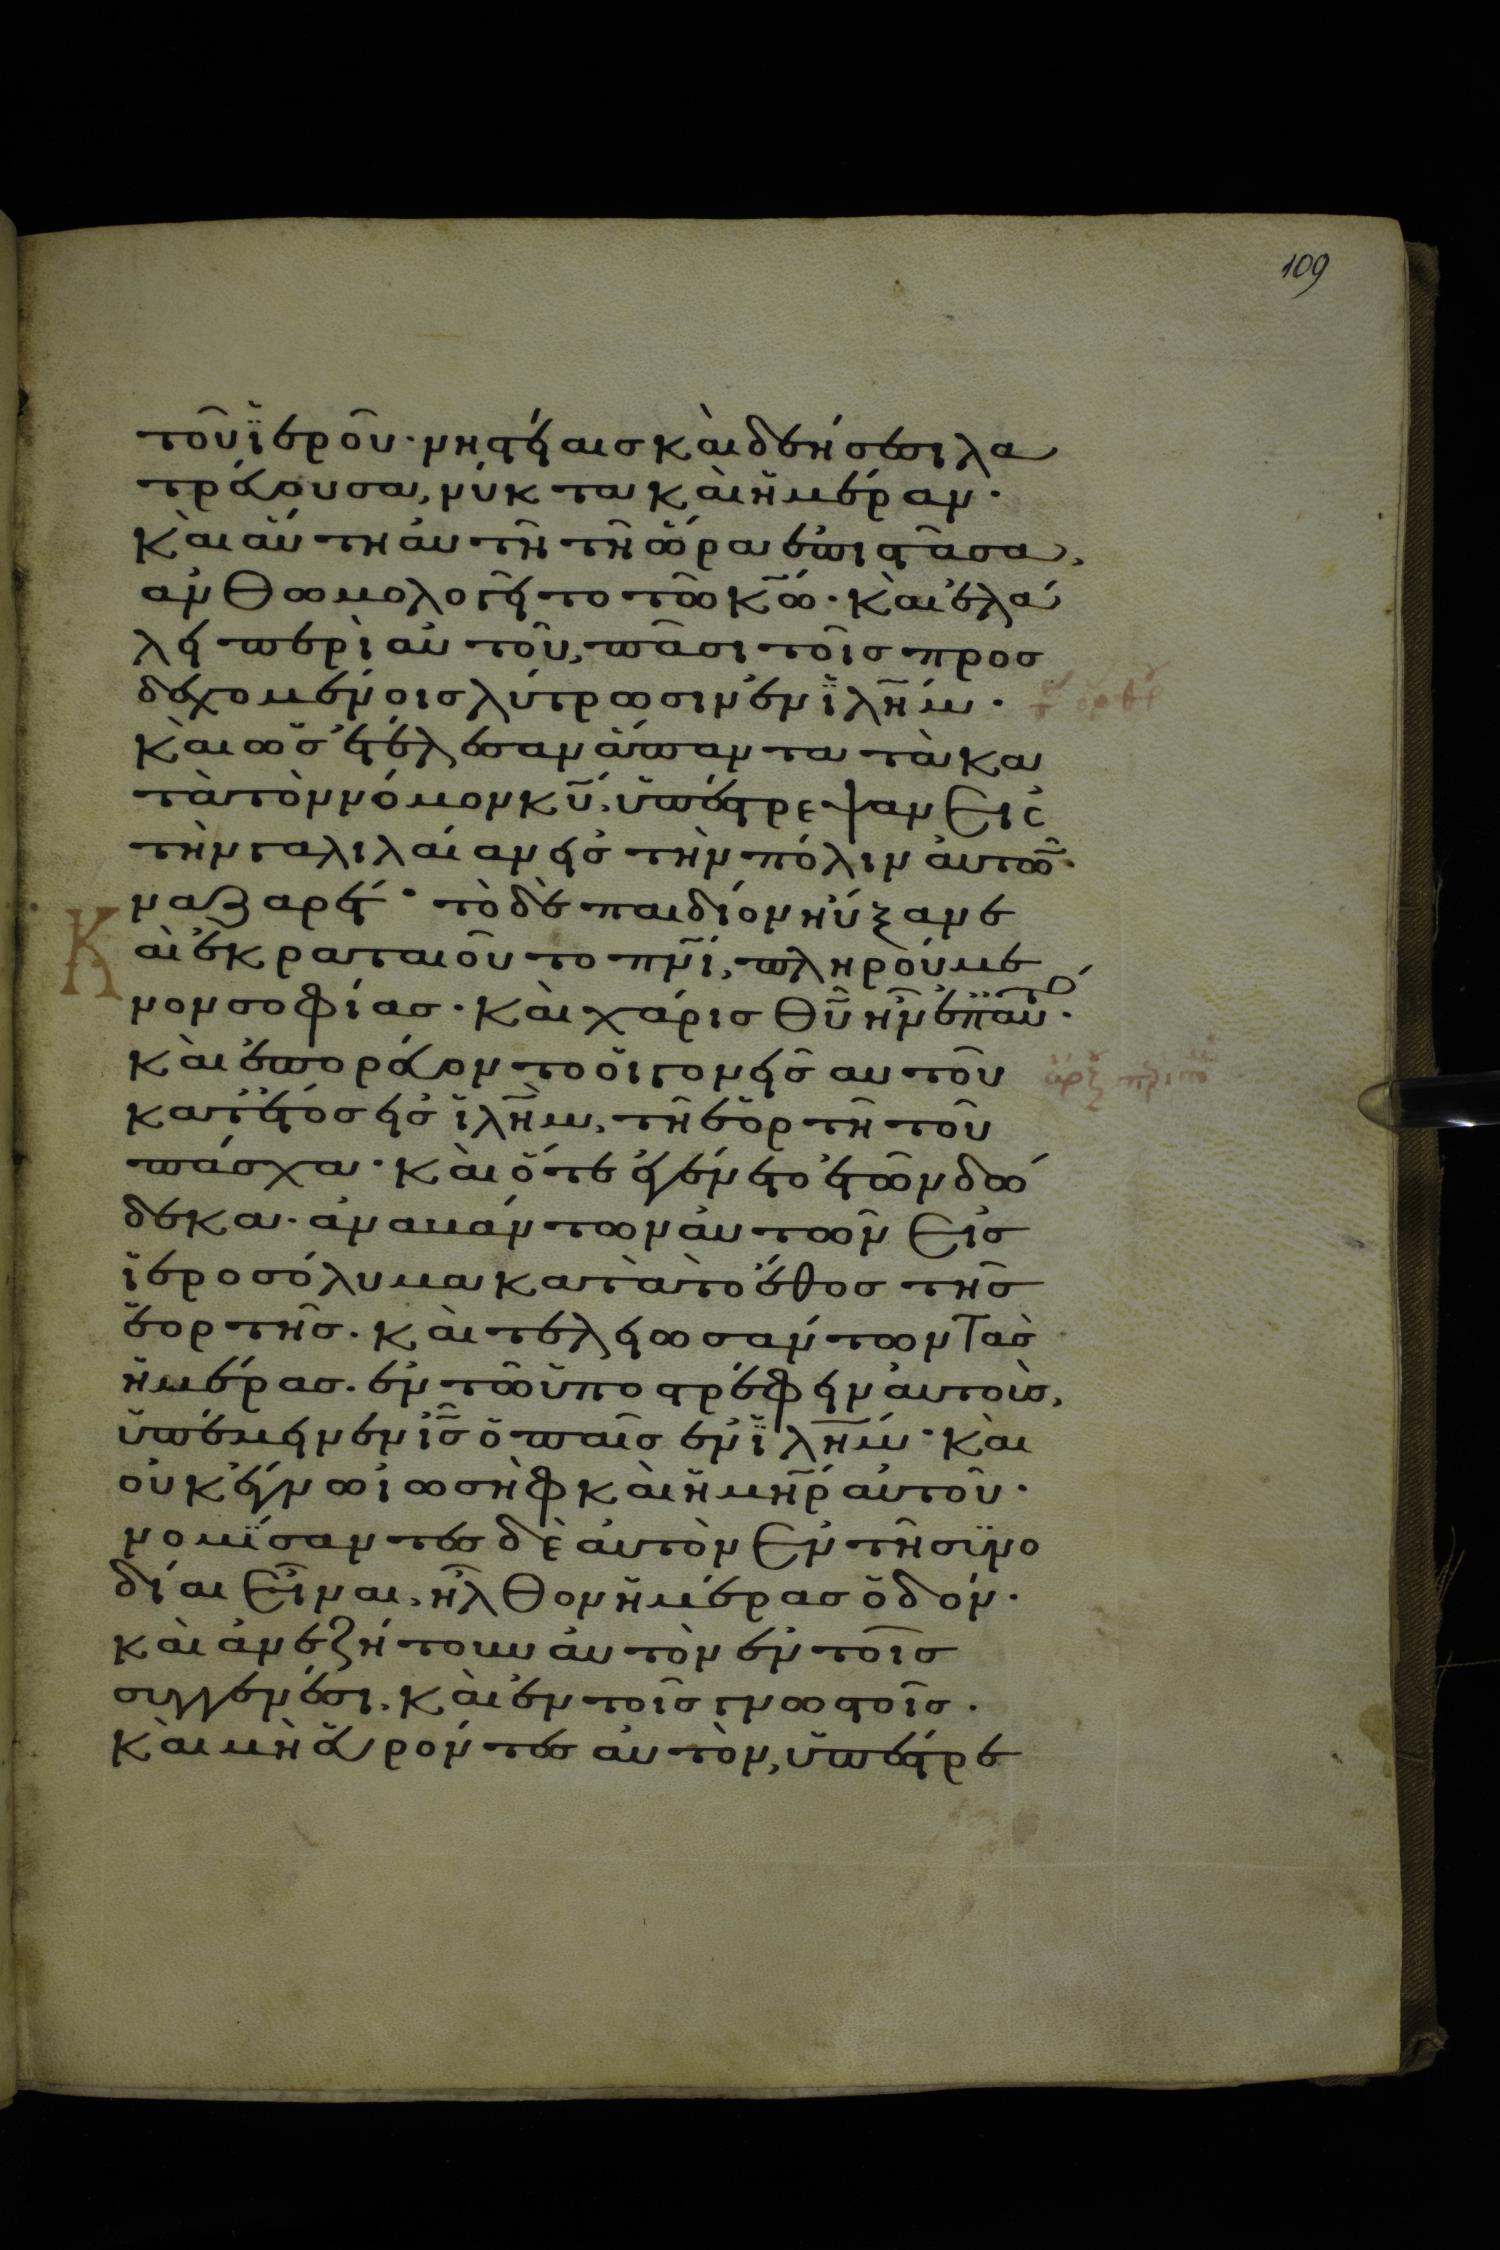 109
τοῦ ἱεροῦ· νηστείαις καὶ δεήσεσι λα
τρεύουσα, νύκτα καὶ ἡμέραν·
καὶ αὕτη αὐτῆ τῆ ὥρα ἐπιστᾶσα,
ἀνθωμολογεῖτο τῶ κω̅· καὶ ἐλά
λει περὶ αὐτοῦ, πᾶσι τοῖς προσ
δεχομένοις λύτρωσιν ἐν ϊλη̅μ·
καὶ ὡς ἐτέλεσαν ἅπαντα τὰ κα
τὰ τὸν νόμον κυ̅, ὑπέστρεψαν εἰς
τὴν γαλιλαίαν εἰς τὴν πόλιν αὐτῶν·
ναζαρέτ· τὸ δὲ παιδίον ηὔξανε
Καὶ ἐκραταιοῦτο πνι̅, πληρούμε
νον σοφίας· καὶ χάρις θυ̅ ἦν ἐπ αὐτό·
καὶ ἐπορεύοντο οἱ γονεῖς αὐτοῦ
κατ ἔτος εἰς ϊλη̅μ, τῆ ἑορτῆ τοῦ
πάσχα· καὶ ὅτε ἐγένετο ἐτῶν δώ
δεκα· ἀναβάντων αὐτῶν εἰς
ἱεροσόλυμα κατὰ τὸ ἔθος τῆς
ἑορτῆς· καὶ τελειωσάντων τὰς
ἡμέρας· ἐν τῶ ὑποστρέφειν αὐτοὺς,
ὑπέμεινεν ις̅ ὁ παῖς ἐν ϊλη̅μ· καὶ
οὐκ ἔγνω ἰωσὴφ καὶ ἡ μη̅ρ αὐτοῦ·
νομίσαντες δὲ αὐτὸν ἐν τῆ συνο
δία εἶναι, ἦλθον ἡμέρας ὁδόν·
καὶ ἀνεζήτουν αὐτὸν ἐν τοῖς
συγγενέσι, καὶ ἐν τοῖς γνωστοῖς·
καὶ μὴ εὑρόντες αὐτὸν, ὑπέστρε